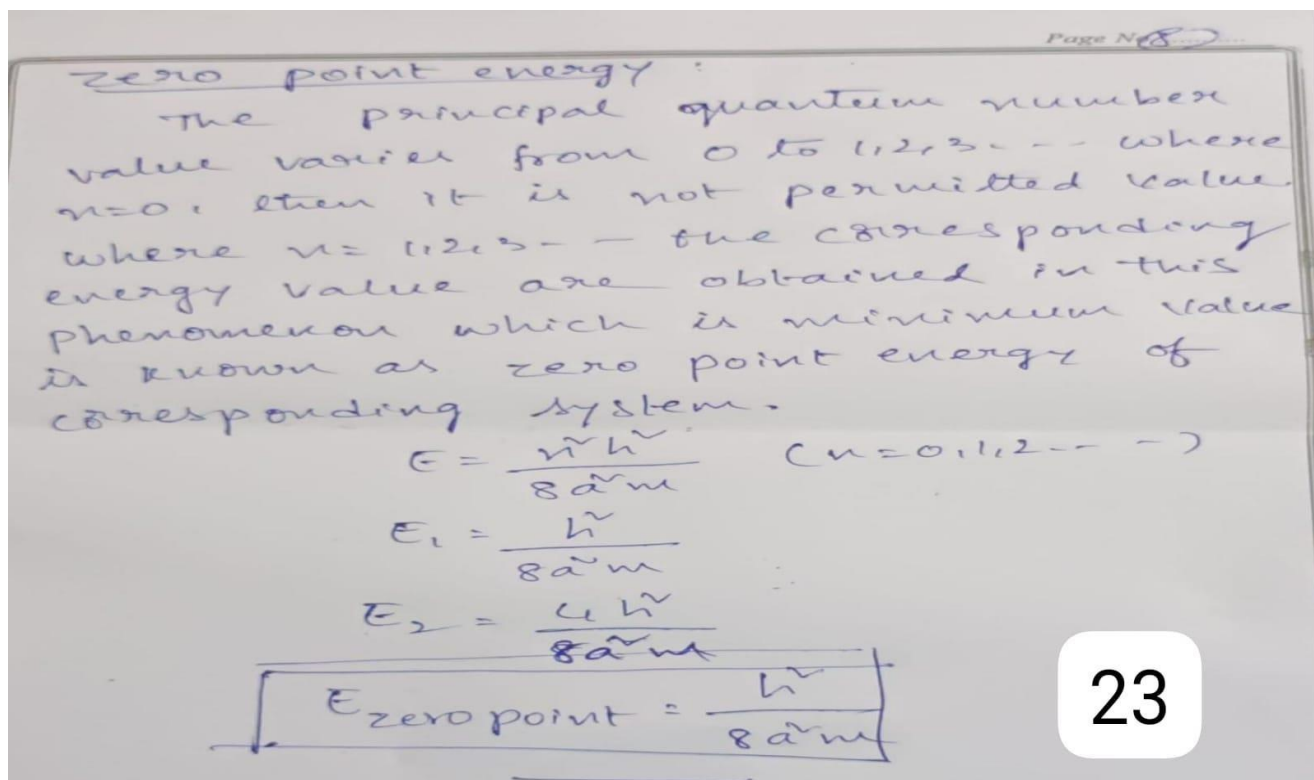 Page No 8
zero point energy :
The principal quantum number
value varies from 0 to 1,2,3--- where
n=0, then it is not permitted value.
where n= 1,2,3-- the corresponding
energy value are obtained in this
phenomenon which is minimum value
is known as zero point energy of
corresponding system.
E = n²h² / 8a²m (n=0,1,2----)
E₁ = h² / 8a²m
E₂ = 4h² / 8a²m
E zero point = h² / 8a²m
23